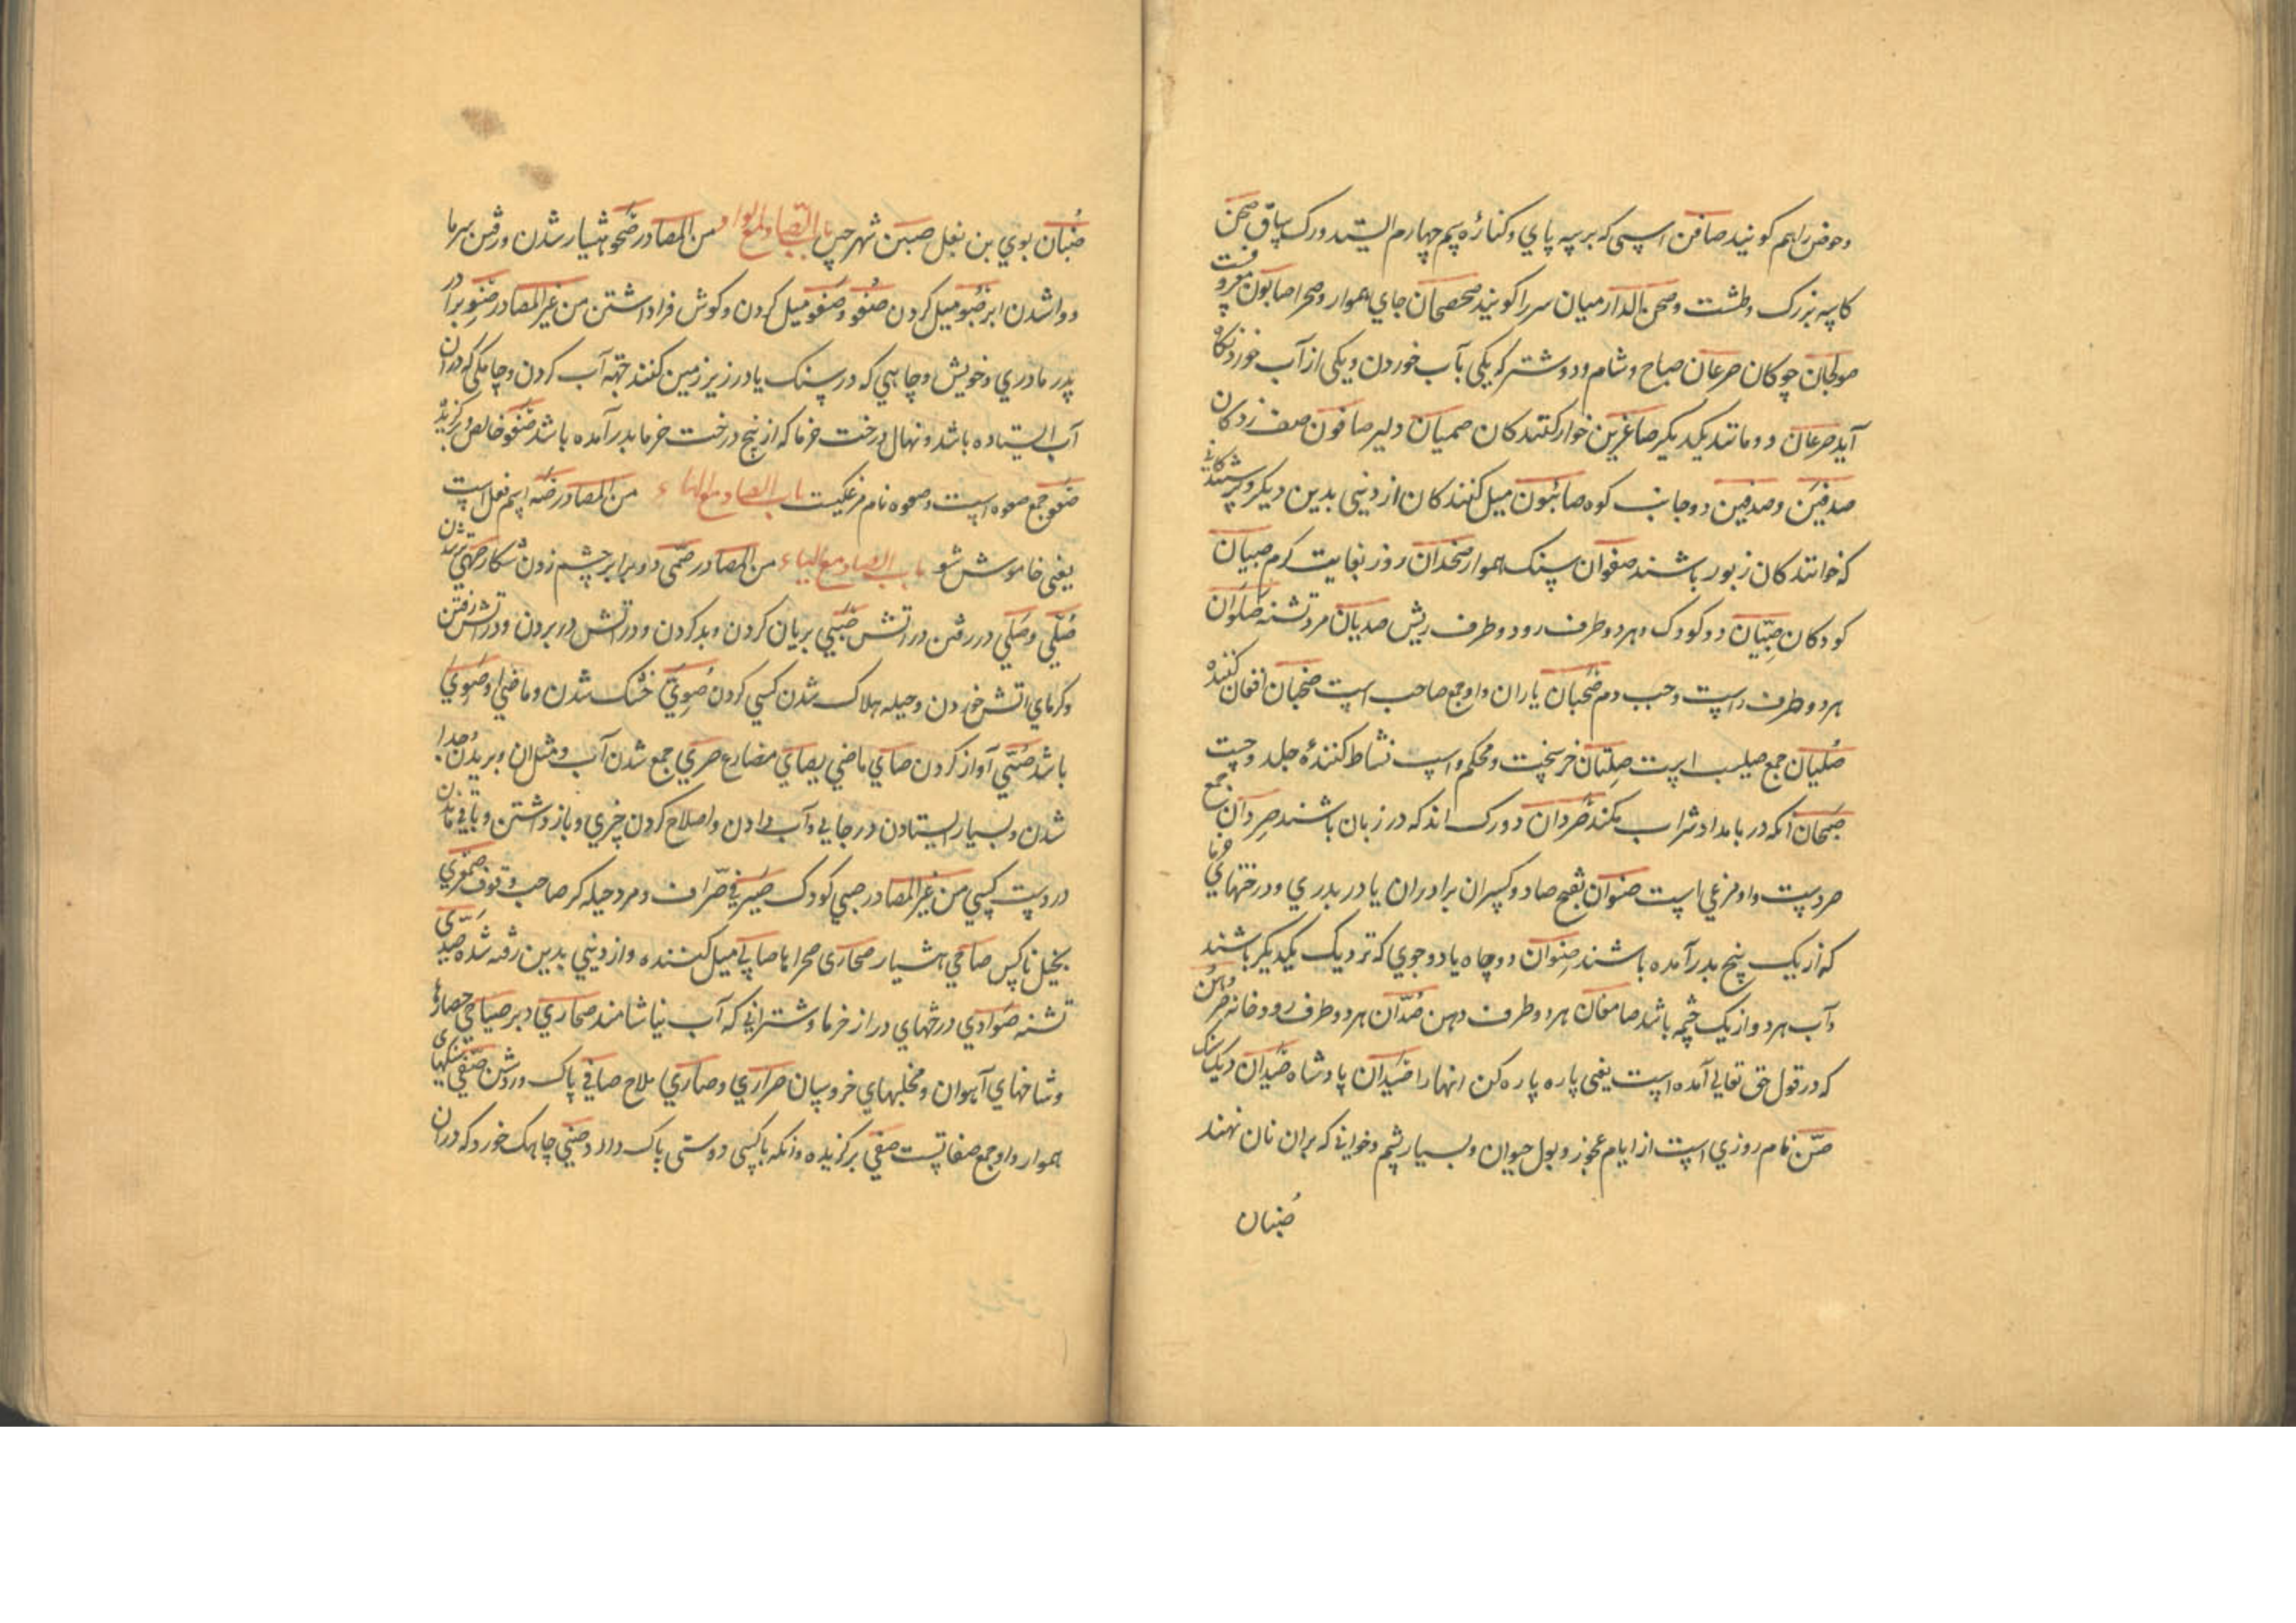 وحوض را هم کویند صافن اسپی که بر سه پای وکنارهٔ سم چهارم ایستد ورک ساق صحن
کاسه بزرک وطشت وصحن الدار میان سرا را کویند صحصحان جای هموار وصحرا صابون معروفست
صولجان چوکان صرعان صباح وشام ودو شتر که یکی بآب خوردن ویکی از آب خوردن
آید صرعان دو مانند یکدیکر صاغرین خوار کنندکان صمیان دلیر صافون صف زدکان
صدفین وصدفین دو جانب کوه صائبون میل کنندکان از دینی بدین دیکر
که خوانندکان زبور باشند صفوان سنک هموار صخدان روز بغایت کرم صبیان
کودکان صبیان دو کودک وهر دو طرف رود ودو طرف ریش صدیان مرد تشنه صلوان
هر دو طرف راست وجب دم صحبان یاران واو جمع صاحب است صخبان افغان کننده
صلبان جمع صلیب است صلتان خر سخت ومحکم واسپ نشاط کنندهٔ جلد وچست
صبحان آنکه در بامداد شراب کند صردان دو رک اند که در زبان باشند صردان جمع
صرد است واو مرغی است صنوان بفتح صاد دو کسان برادران یا در پدری ودرختهای خرما
که از یک بیخ بدر آمده باشند صنوان دو چاه یا دو جوی که نزدیک یکدیکر باشند
وآب هر دو از یک چشمه باشد صامغان هر دو طرف دهن صدان هر دو طرف رودخانه صرهن
که در قول حق تعالی آمده است یعنی پاره پاره کن انها را صیدان پادشاه صیدان دیک سنک
صن نام روزی است از ایام عجوز وبول حیوان وبسیار پشم وخوانی که بران نان نهند
صنبان
صنبان بوی بن بغل صین شهر چین باب الصاد مع الواو من المصادر صحو هشیار شدن ورفتن سرما
ووا شدن ابر صبو میل کردن صغو وصغو میل کردن وکوش فرا داشتن من غیر المصادر صنو برادر
پدر مادری وخویش وچاهی که در سنک یا در زیر زمین کنند جهة آب کردن وجایکی که دران
آب ایستاده باشد ونهال درخت خرما که از بیخ درخت خرما بدر آمده باشد صفو خالص وبرکزیده
صعو جمع صعوه است وصعوه نام مرغکیست باب الصاد مع الهاء من المصادر صه اسم فعل است
یعنی خاموش شو باب الصاد مع الیاء من المصادر صمی دو برابر چشم زدن شکار صهی
صلی وصلی در رفتن در آتش صبی بریان کردن وبد کردن ودر آتش در بردن ودر آتش رفتن
وکرمای آتش خوردن وحیله هلاک شدن کسی کردن صوی خشک شدن وماضی او صوی
باشد صئی آواز کردن صای ماضی یصای مضارع صری جمع شدن آب ومثل ان وبریدن وجدا
شدن وبسیار ایستادن در جایی وآب دادن واصلاح کردن چیزی وباز داشتن وباقی ماندن
در دست کسی من غیر المصادر صبی کودک صیرفی صراف ومرد حیله کر صاحب وقوف صمغری
بخیل ناکس صاحی هشیار صحاری صحراها صابی میل کننده واز دینی بدین رفته شده صدی
تشنه صوادی درختهای دراز خرما وشترانی که آب نیاشامند صحاری دبر صیاصی حصارها
وشاخهای آهوان ومخلبهای خروسان صراری وصاری ملاح صافی پاک وروشن صفی سنکهای
هموار واو جمع صفاتست صفی برکزیده وانکه با کسی دوستی پاک دارد وصنی چاهک خورد که دران